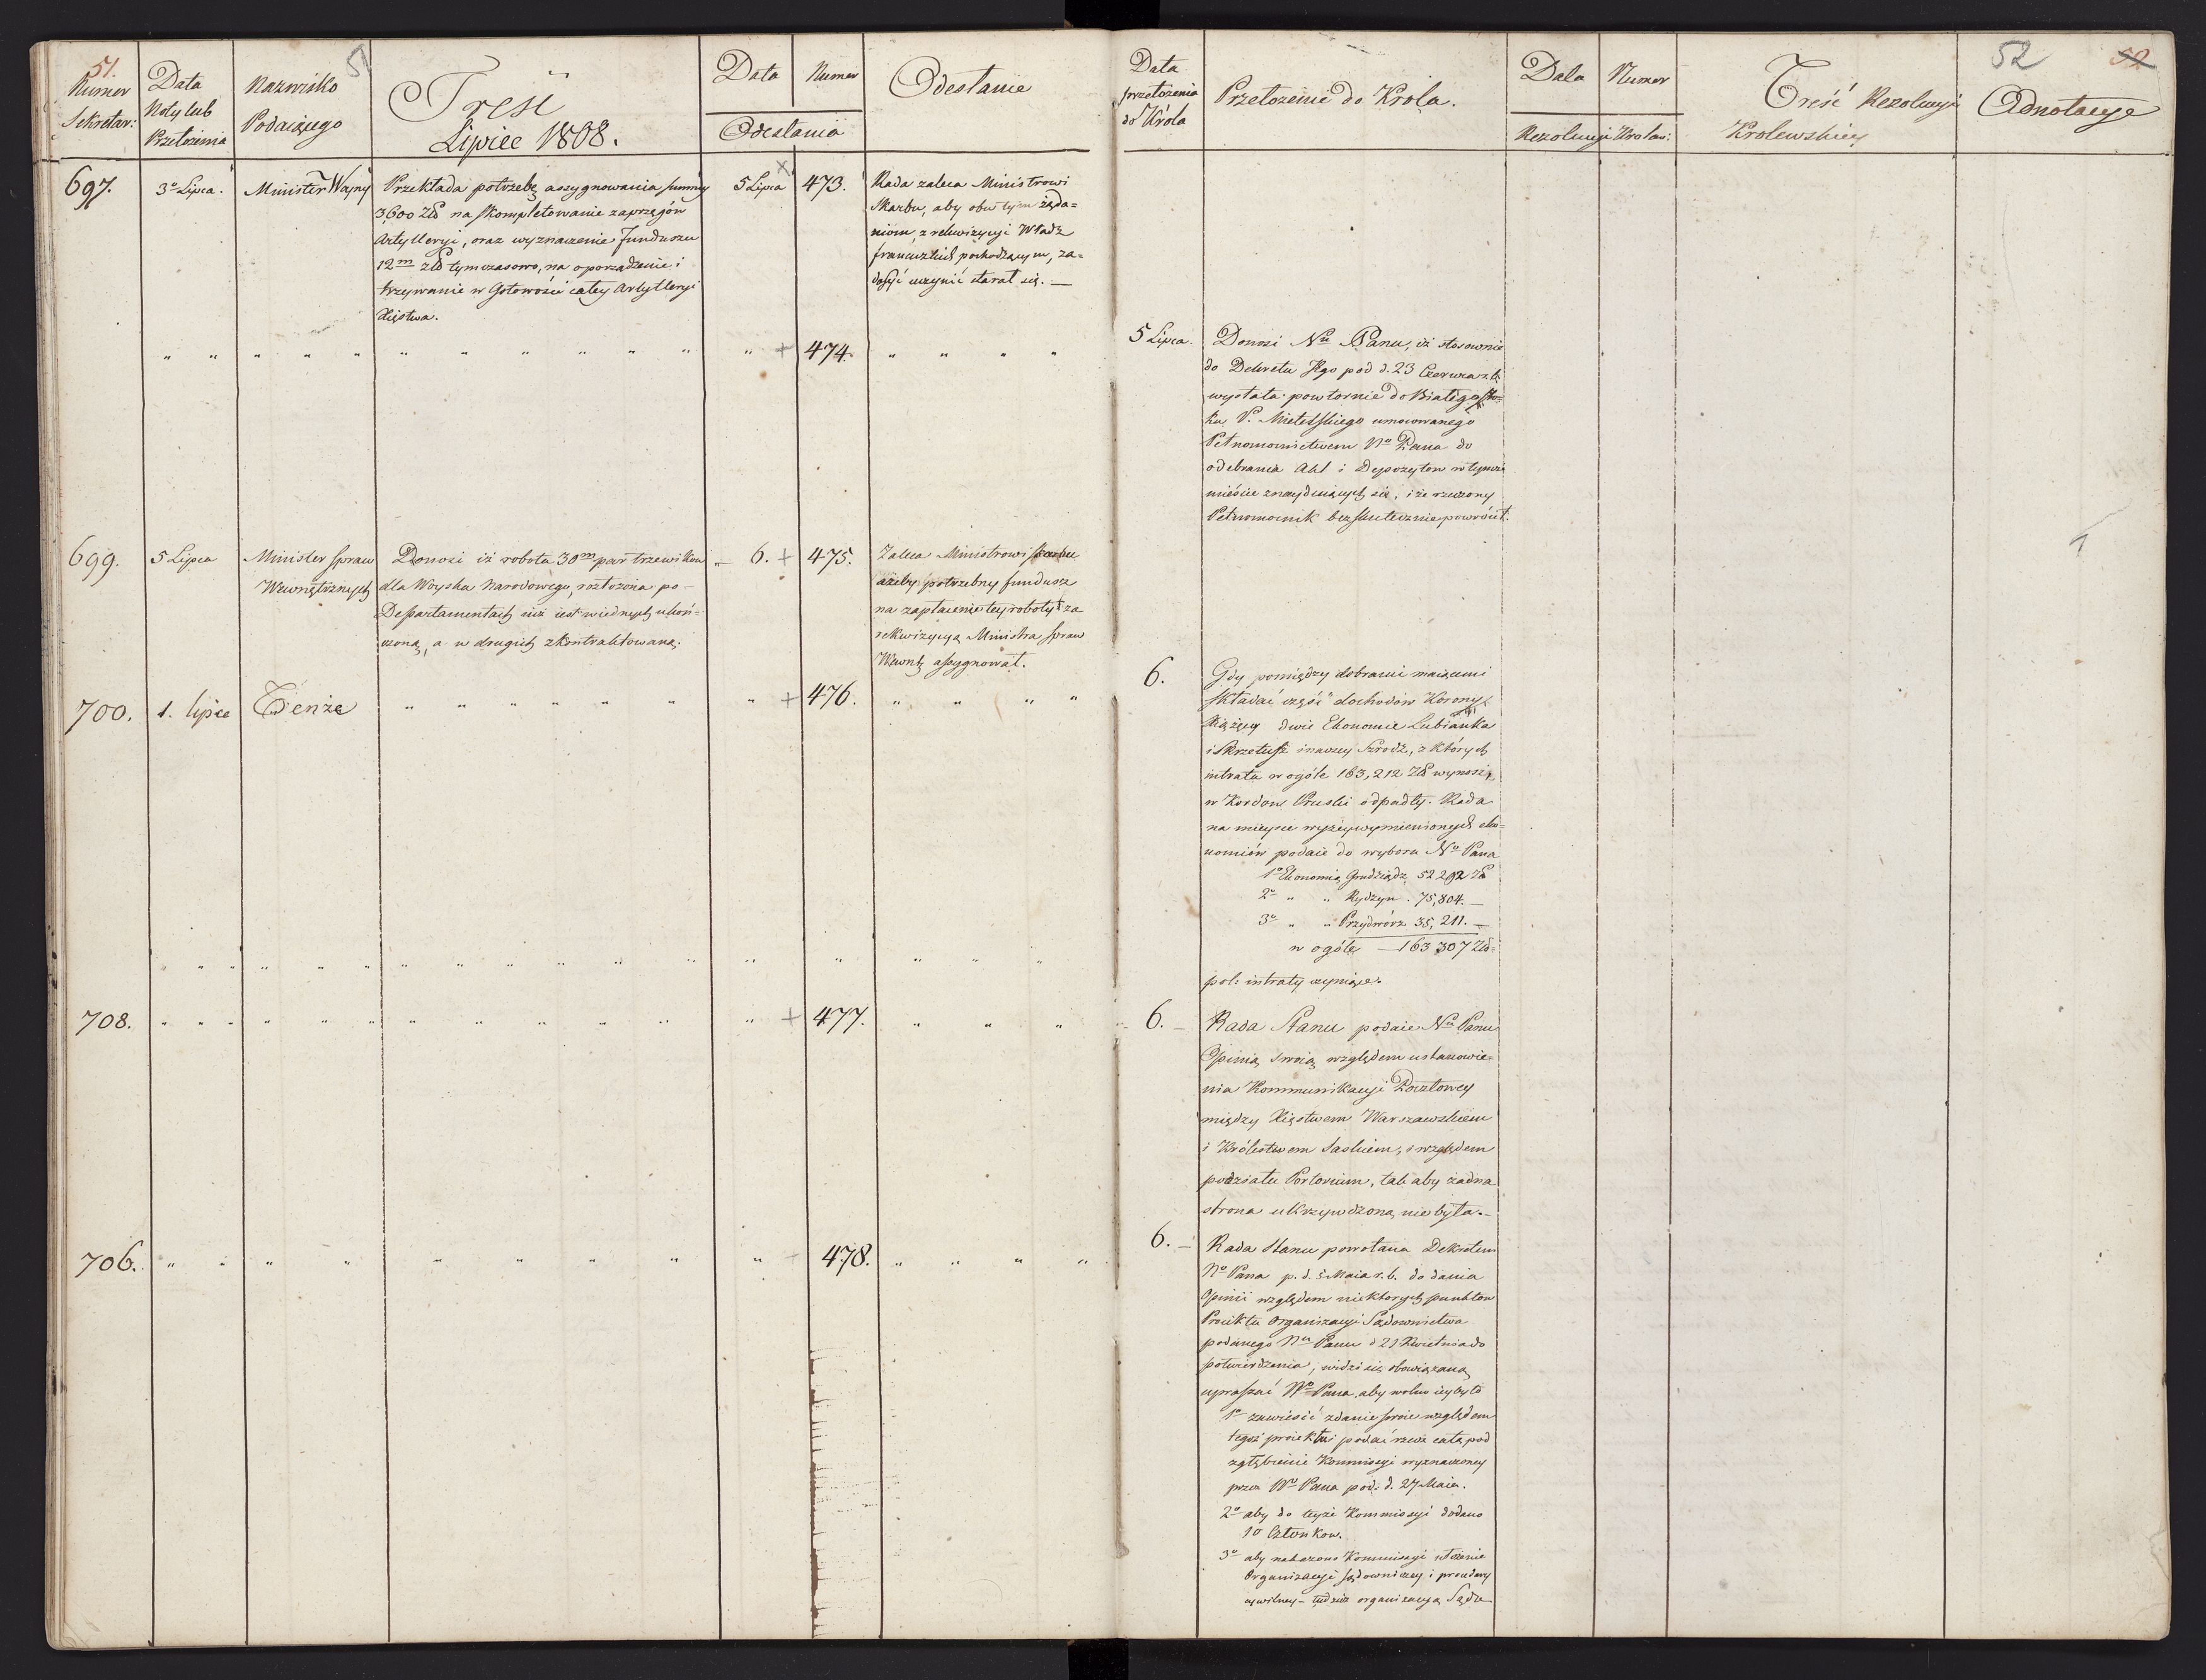 51.
51
Numer
Sekretar:
Data
Noty lub
Przełożenia
Nazwisko
Podaiącego
Treść
Lipiec 1808.
Data
Numer
Odesłania
Odesłanie
697.
3º Lipca.
Minister Wojny
Przekłada potrzebę assygnowania summy
3,600 Złł na skompletowanie zaprzęgów
Artylleryi, oraz wyznaczenie funduszu
12m złł tymczasowo, na oporządzenie i
trzymanie w Gotowości całey Artylleryi
Xięstwa.
5 Lipca
473.
Rada zaleca Ministrowi
Skarbu, aby obu tym żąda=
niom, z rekwizycyi Władz
francuzkich pochodzącym, za=
dosyć uczynić starał się. —
" " " " " " " " " " " " + 474. " " " "
699.
5 Lipca
Minister spraw
Wewnętrznych
Donosi iż robota 30m par trzewików
dla Woyska Narodowego, rozłożona po
Departamentach iuż iest w iednych ukoń=
czoną, a w drugich zkontraktowaną.
6. +
475.
Zaleca Ministrowi skarbu
ażeby potrzebny fundusz
na zapłacenie tey roboty za
rekwizycyą Ministra spraw
Wewntz assygnował.
700.
1. lipca
Tenże
" " " " " " " + 476. " " " "
" " " " " " " " " " " " " " " " "
708. " " " " " " " " " " " " + 477. " " "
706. " " " " " " " " " 478. " " " "
52
52
Data
przełożenia
do Króla
Przełożenie do Króla.
Data
Numer
Rezolucyi Królew:
Treść Rezolucyi
Krolewskiey
Adnotacye
5 Lipca.
Donosi Nu Panu, iż stosownie
do Dekretu Jego pod d. 23 Czerwca r. b.
wysłała powtornie do Białegosto=
ku P. Mieleskiego umocowanego
Pełnomocnictwem No Pana do
odebrania Akt i Depozytow w tymże
mieście znayduiących się, i że rzeczony
Pełnomocnik bezskutecznie powrócił.
6.
Gdy pomiędzy dobrami maiącemi
składać część dochodów Korony
Xiążęcey dwie Ekonomie Lubianka
i Skrzetusz inaczey Szrodz, z których
intrata w ogóle 163,212 Złł wynosi,
w Kordon Pruski odpadły. Rada
na mieysce wyżey wymienionych eko=
nomiów podaie do wyboru No Pana
1º Ekonomią Grudziądz 52 292 Zł
2º " " Rydzyn . 75,804. —
3º " " Przydwórz 35,211. —
w ogóle — 163 307 Złł=
pol: intraty czyniące.
6. —
Rada Stanu podaie Nu Panu
Opinią swoią względem ustanowie=
nia Kommunikacyi Pocztowey
między Xięstwem Warszawskiem
i Królestwem Saskiem, i względem
podziału Portorium, tak aby żadna
strona ukrzywdzoną nie była. —
6. —
Rada Stanu powołana Dekretem
No Pana p. d. 5 Maia r. b. do dania
Opinii względem niektorych punktow
Proiektu Organizacyi Sądownictwa
podanego Nu Panu d 21 Kwietnia do
potwierdzenia, widzi się obowiązaną
upraszać No Pana, aby wolno iey było
1º zawiesić zdanie swoie względem
tegoż proiektu i podać rzecz całą pod
zgłębienie Kommissyi wyznaczoney
przez No Pana pod: d. 27 Maia.
2º aby do teyże Kommissyi dodano
10 Członkow.
3º aby nakazano Kommissyi ułożenie
Organizacyi sądowniczey i procedury
cywilney — tudzież organizacyą Sądze